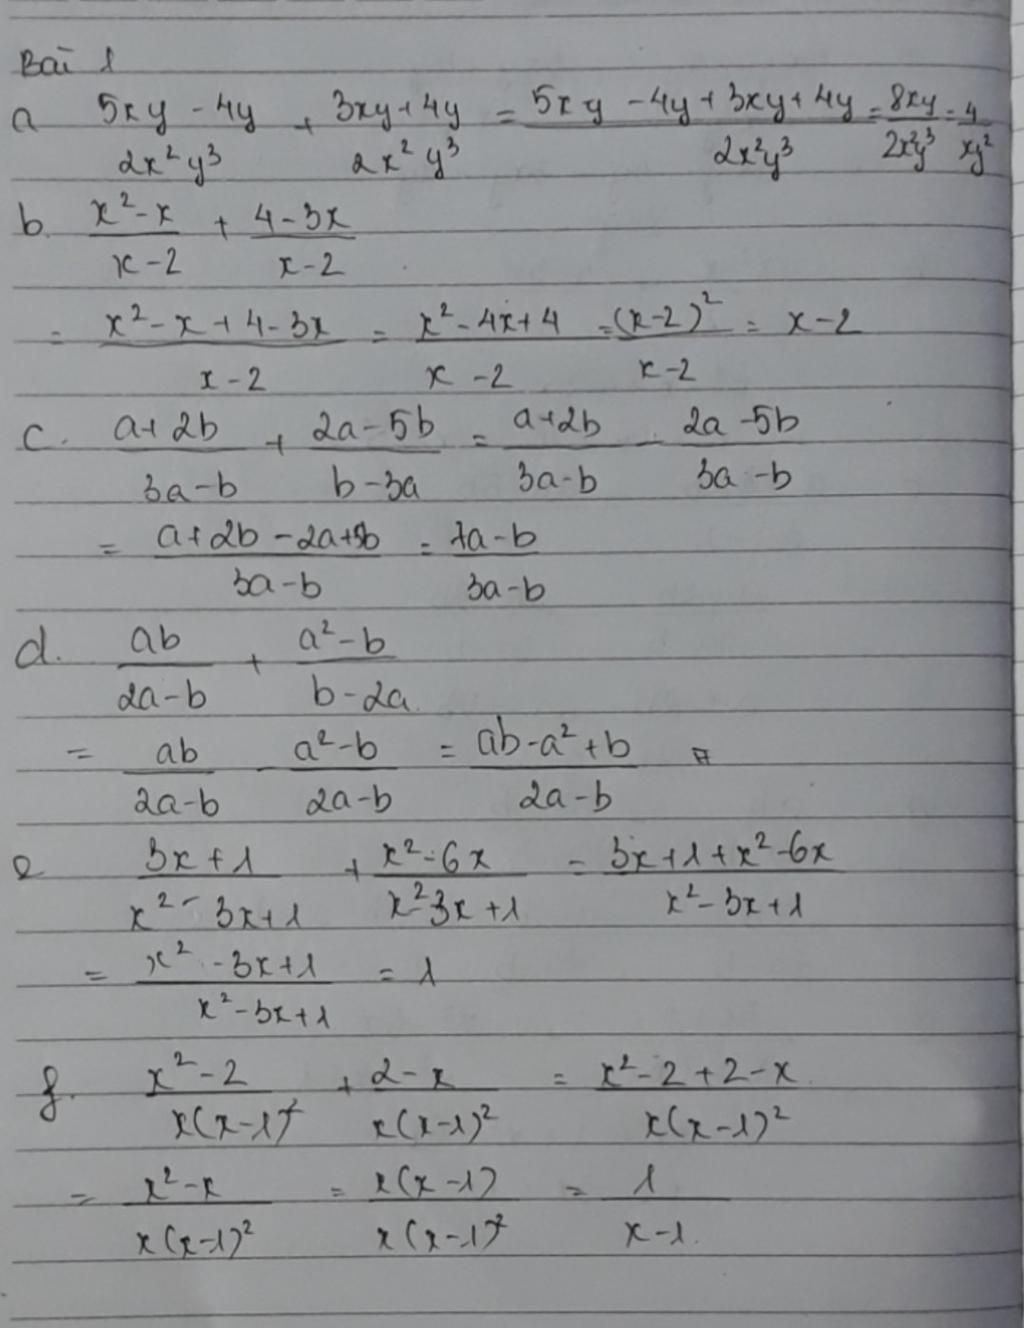 Bài 1
a (5xy - 4y)/(2x²y³) + (3xy + 4y)/(2x²y³) = (5xy - 4y + 3xy + 4y)/(2x²y³) = 8xy/(2x²y³) = 4/(xy²)
b. (x² - x)/(x - 2) + (4 - 3x)/(x - 2)
= (x² - x + 4 - 3x)/(x - 2) = (x² - 4x + 4)/(x - 2) = (x - 2)²/(x - 2) = x - 2
c. (a + 2b)/(3a - b) + (2a - 5b)/(b - 3a) = (a + 2b)/(3a - b) - (2a - 5b)/(3a - b)
= (a + 2b - 2a + 5b)/(3a - b) = (7a - b)/(3a - b)
d. ab/(2a - b) + (a² - b)/(b - 2a)
= ab/(2a - b) - (a² - b)/(2a - b) = (ab - a² + b)/(2a - b)
e (3x + 1)/(x² - 3x + 1) + (x² - 6x)/(x² - 3x + 1) = (3x + 1 + x² - 6x)/(x² - 3x + 1)
= (x² - 3x + 1)/(x² - 3x + 1) = 1
f. (x² - 2)/(x(x - 1)²) + (2 - x)/(x(x - 1)²) = (x² - 2 + 2 - x)/(x(x - 1)²)
= (x² - x)/(x(x - 1)²) = x(x - 1)/(x(x - 1)²) = 1/(x - 1).